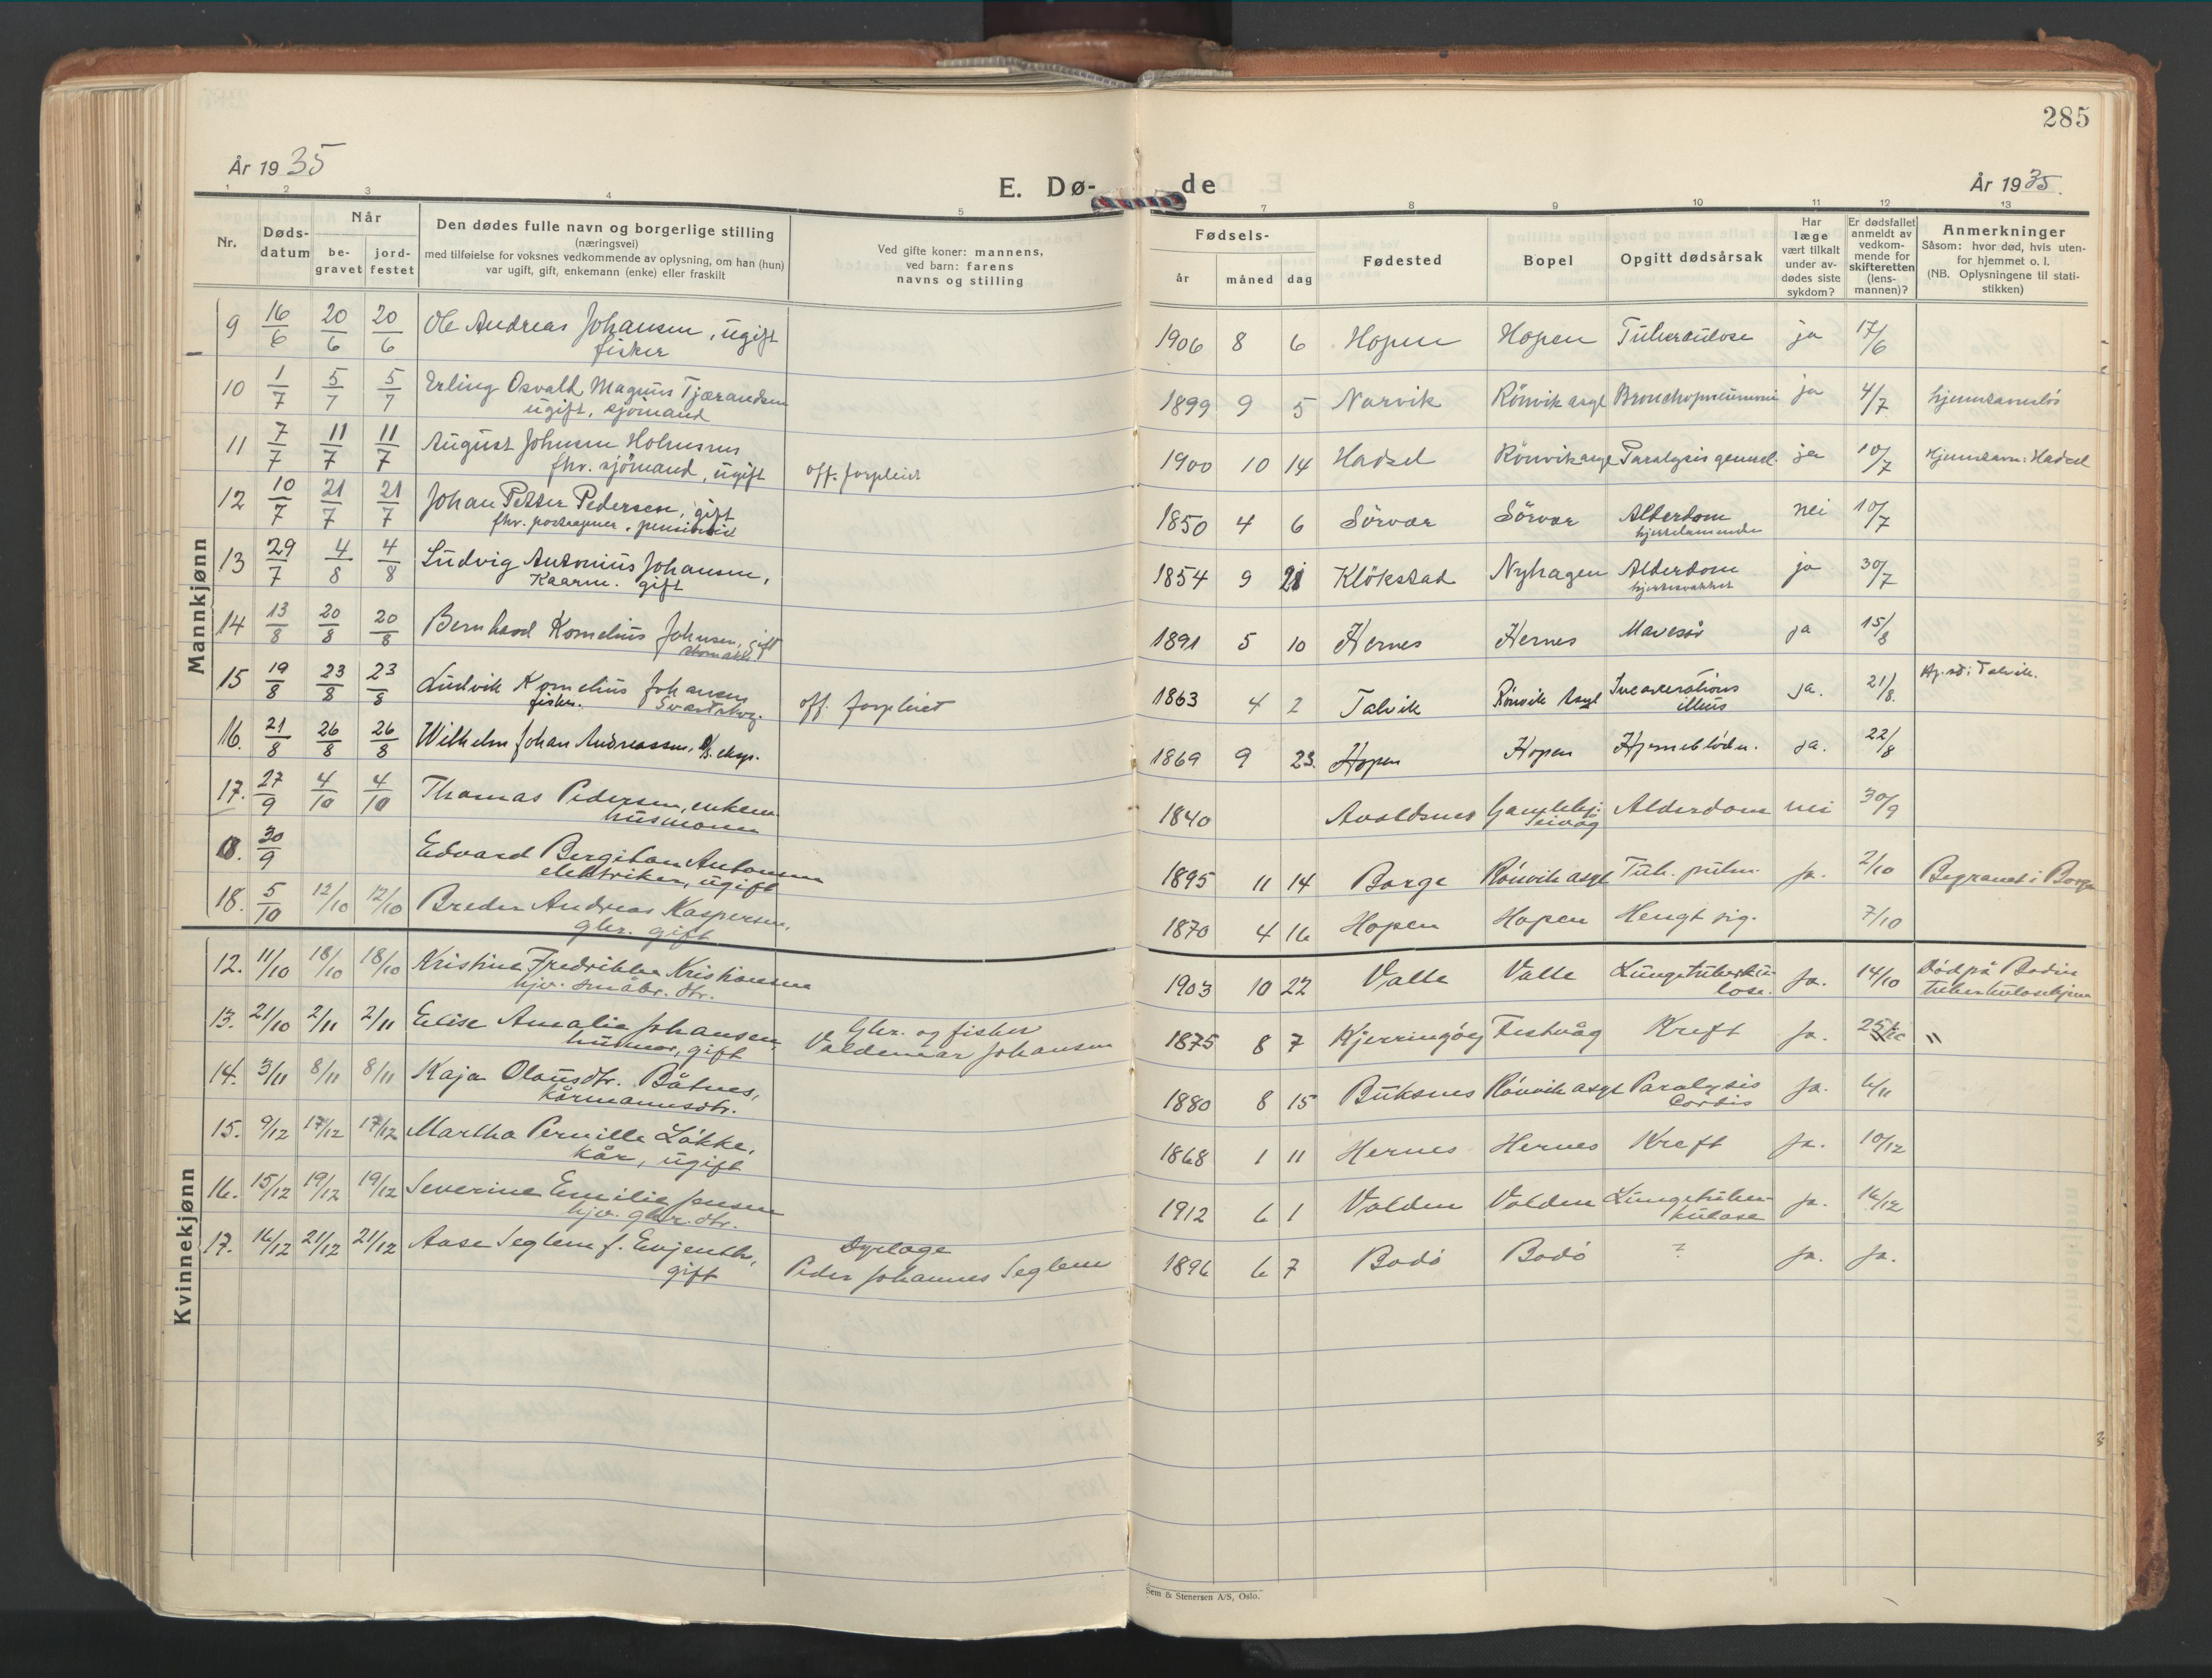 285
År 1935
E. Dø-
de
År 1935.
1 2 3 4 5 7 8 9 10 11 12 13
Nr.
Døds-
datum
Når
be-
gravet
jord-
festet
Den dødes fulle navn og borgerlige stilling
(næringsvei)
med tilføielse for voksnes vedkommende av oplysning, om han (hun)
var ugift, gift, enkemann (enke) eller fraskilt
Ved gifte koner: mannens,
ved barn: farens
navns og stilling
Fødsels-
år måned dag
Fødested
Bopel
Opgitt dødsårsak
Har
læge
vært tilkalt
under av-
dødes siste
sykdom?
Er dødsfallet
anmeldt av
vedkom-
mende for
skifteretten
(lens-
mannen)?
Anmerkninger
Såsom: hvor død, hvis uten-
for hjemmet o. l.
(NB. Oplysningene til stati-
stikken)
Mannkjønn
9 16/6 20/6 20/6 Ole Andreas Johansen, ugift 1906 8 6 Hopen Hopen Tuberculose ja 17/6
fisker
10 1/7 5/7 5/7 Erling Osvald Magnus Tjærandsen 1899 9 5 Narvik Rönvik asyl Bronchopneumoni ja 4/7 hjemstavnslös
ugift, sjömand
11 7/7 11/7 11/7 August Johnsen 1900 10 14 Hadsel Rönvik asyl Paralysis generel. ja 10/7 Hjemstavn: Hadsel
fhv. sjömand, ugift off. forpleiet
12 10/7 21/7 21/7 Johan Petter Pedersen, gift 1850 4 6 Sörvær Sörvær Alderdom nei 10/7
fhv.
13 29/7 4/8 4/8 Ludvig Antonius Johansen, 1854 9 21 Klökstad Nyhagen Alderdom ja 30/7
Kaarm. gift
14 13/8 20/8 20/8 Bernhard Kornelius Johnsen, gift 1891 5 10 Hernes Hernes Mavesår ja 15/8
15 19/8 23/8 23/8 Ludvik Kornelius Johansen off. forpleiet 1863 4 2 Talvik Rönvik Asyl Incarcerations ja. 21/8. Hj.st: Talvik.
fisker. Svartskog. illeus
16. 21/8 26/8 26/8 Wilhelm Johan Andreassen, eksp. 1869 9 23. Hopen Hopen Hjerneblödn. ja. 22/8
17. 27/9 4/10 4/10 Thomas Pedersen, enkem. 1840 Avaldsnes Alderdom nei 30/9
husmann
30/9 Edvard Bergiton Antonsen 1895 11 14 Borge Rönvik asyl Tub. pulm. ja. 2/10 Begravet i Borge
elektriker, ugift
18. 5/10 12/10 12/10 Breder Andreas Kaspersen, 1870 4 16 Hopen Hopen Hengt sig. 7/10
gbr. gift
Kvinnekjønn
12. 11/10 18/10 18/10 Kristine Fredrikke Kristiansen 1903 10 22 Valle Valle Lungetuberku- ja. 14/10 Död på Bodin
hjv. småbr. dtr. lose. tuberkulosehjem
13. 21/10 2/11 2/11 Elise Amalie Johansen, Gbr. og fisker 1875 8 7 Kjerringöy Festvåg Kreft ja. "
husmor, gift Valdemar Johansen
14. 3/11 8/11 8/11 Kaja Olausdtr. Båtnes, 1880 8 15 Buksnes Rönvik asyl Paralysis ja. 6/11
kårmannsdtr. Cordis
15. 9/12 17/12 17/12 Martha Pernille Lökke, 1868 1 11 Hernes Hernes Kreft ja. 10/12
kår, ugift
16. 15/12 19/12 19/12 Severine Emilie Jensen 1912 6 1 Valden Valden Lungetuber- ja. 16/12
hjv. gbr. dtr. kulose
17. 16/12 21/12 21/12 Aase Seglem f. Evjenth, Dyrlæge 1896 6 7 Bodö Bodö ? ja. ja.
gift Peder Johannes Seglem
Sem & Stenersen A/S, Oslo.